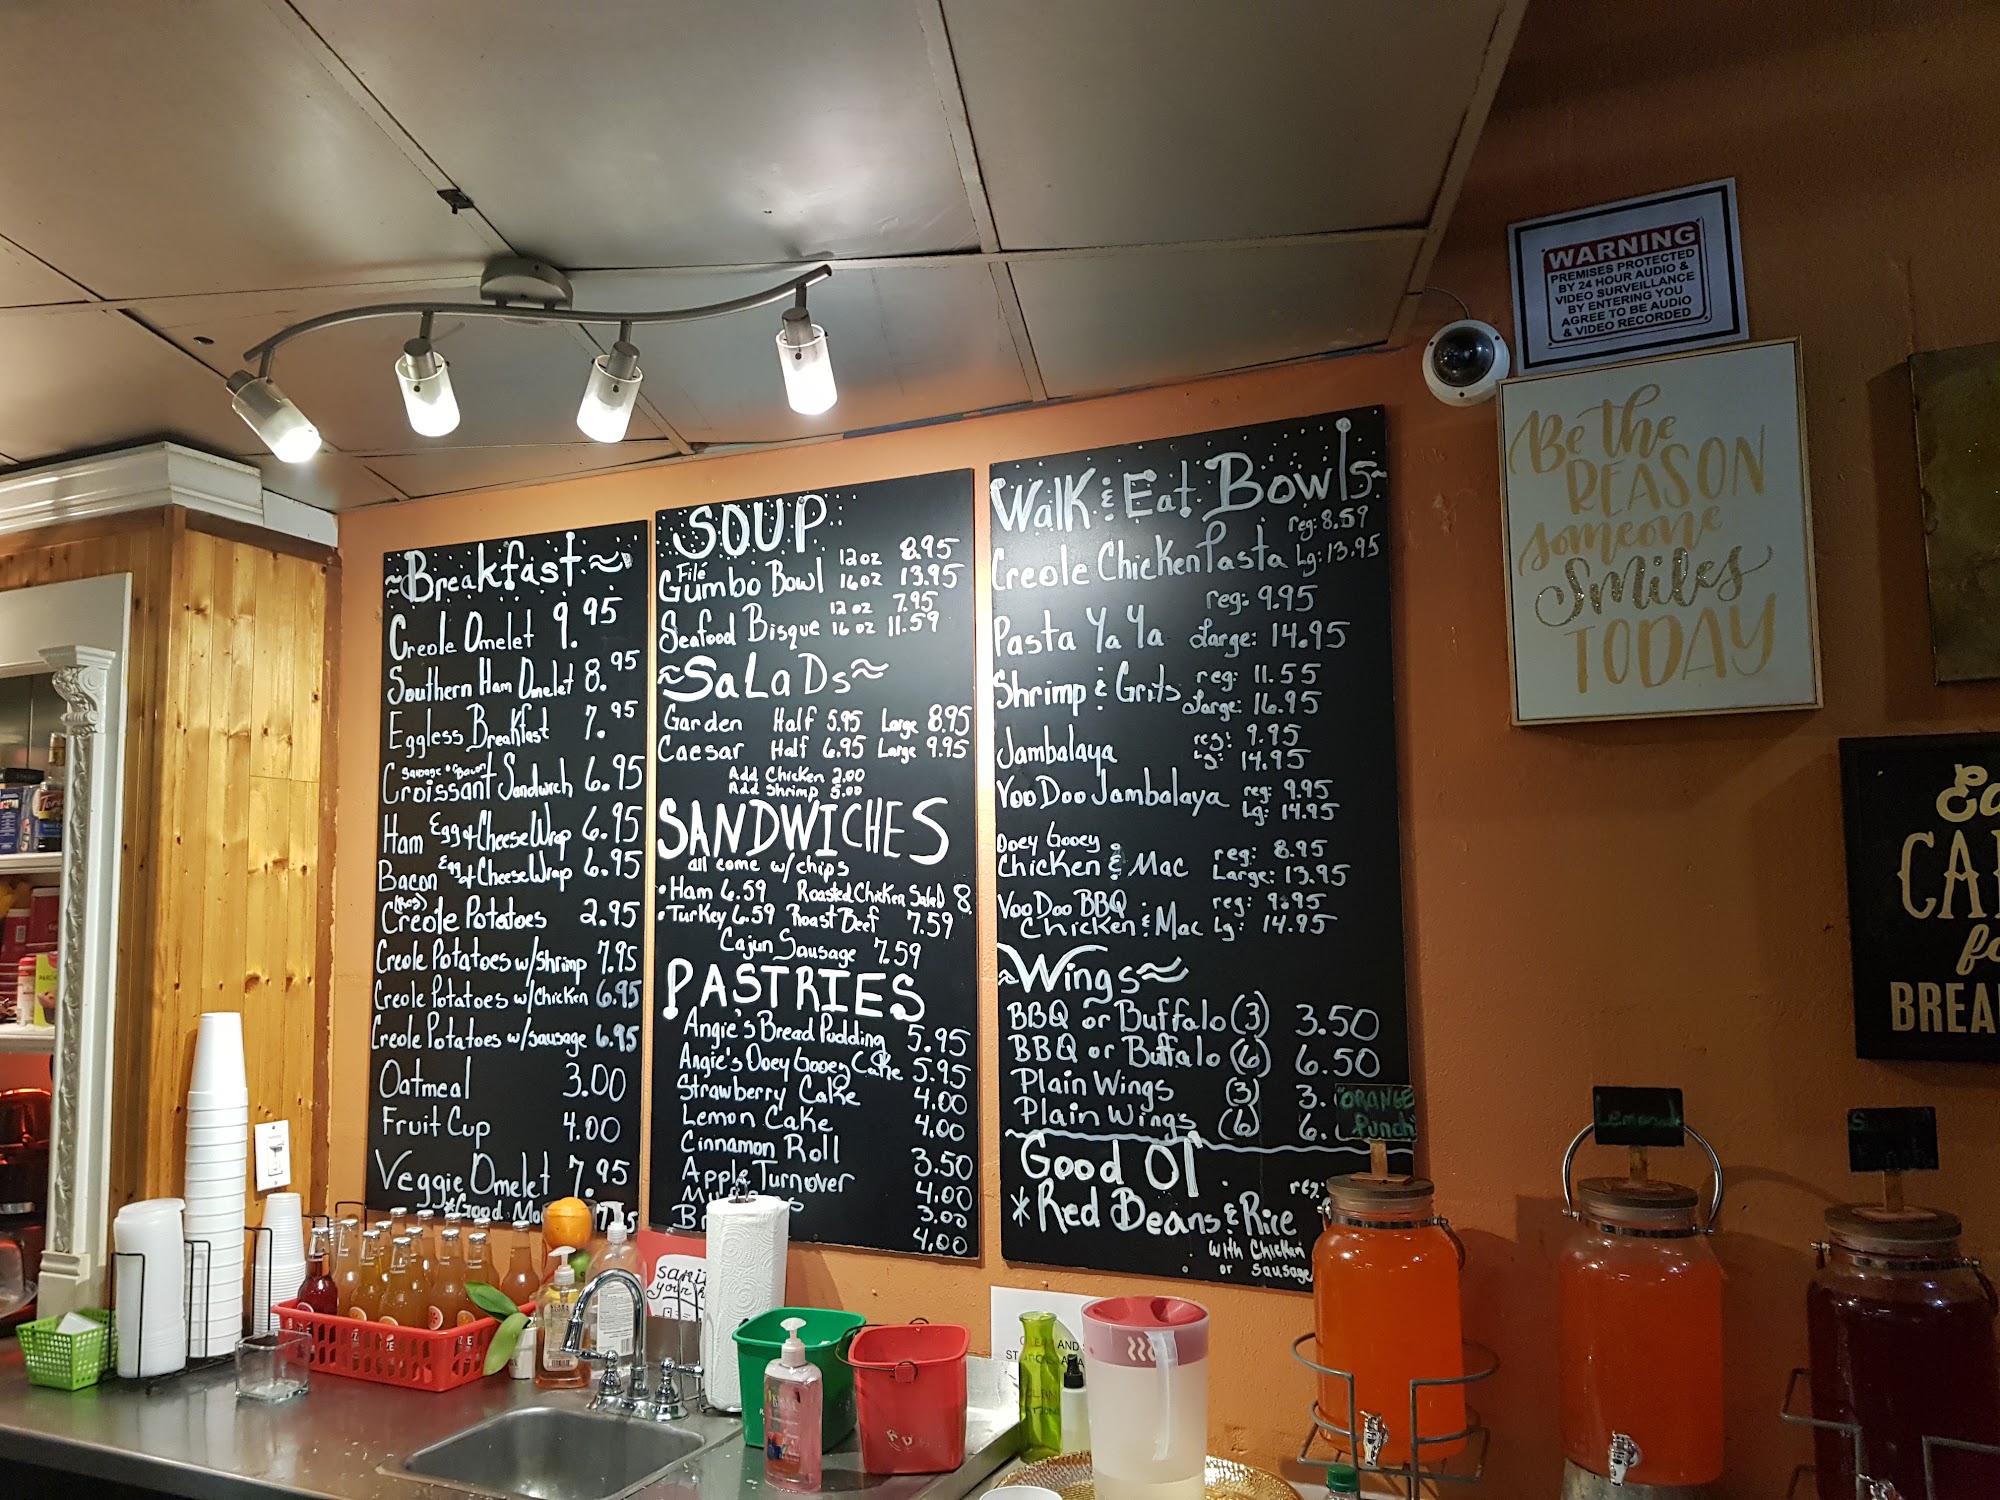 ~Breakfast~
Creole Omelet 9.95
Southern Ham Omelet 8.95
Eggless Breakfast 7.95
Sausage or Bacon
Croissant Sandwich 6.95
Ham Egg & Cheese Wrap 6.95
Bacon Egg & Cheese Wrap 6.95
Creole Potatoes 2.95
Creole Potatoes w/shrimp 7.95
Creole Potatoes w/chicken 6.95
Creole Potatoes w/sausage 6.95
Oatmeal 3.00
Fruit Cup 4.00
Veggie Omelet 7.95
*Good
SOUP
Filé
Gumbo Bowl 12oz 8.95
16oz 13.95
Seafood Bisque 12 oz 7.95
16 oz 11.59
~SaLaDs~
Garden Half 5.95 Large 8.95
Caesar Half 6.95 Large 9.95
Add Chicken 2.00
Add Shrimp 5.00
SANDWICHES
all come w/chips
•Ham 6.59 Roasted Chicken Salad 8.
•Turkey 6.59 Roast Beef 7.59
Cajun Sausage 7.59
PASTRIES
Angie's Bread Pudding 5.95
Angie's Ooey Gooey Cake 5.95
Strawberry Cake 4.00
Lemon Cake 4.00
Cinnamon Roll 3.50
Apple Turnover 4.00
3.00
4.00
Walk & Eat Bowls~
Creole Chicken Pasta reg: 8.59
Lg: 13.95
Pasta YaYa reg: 9.95
Large: 14.95
Shrimp & Grits reg: 11.55
Large: 16.95
Jambalaya reg: 9.95
Lg: 14.95
VooDoo Jambalaya reg: 9.95
Lg: 14.95
Ooey Gooey
Chicken & Mac reg: 8.95
Large: 13.95
VooDoo BBQ reg: 9.95
Chicken & Mac Lg: 14.95
~Wings~
BBQ or Buffalo (3) 3.50
BBQ or Buffalo (6) 6.50
Plain Wings (3) 3.
Plain Wings (6) 6.
Good Ol'
*Red Beans & Rice reg:
with Chicken
or Sausage
ORANGE
Punch
Lemonade
WARNING
PREMISES PROTECTED
BY 24 HOUR AUDIO &
VIDEO SURVEILLANCE
BY ENTERING YOU
AGREE TO BE AUDIO
& VIDEO RECORDED
Be the
REASON
someone
Smiles
TODAY
BREA